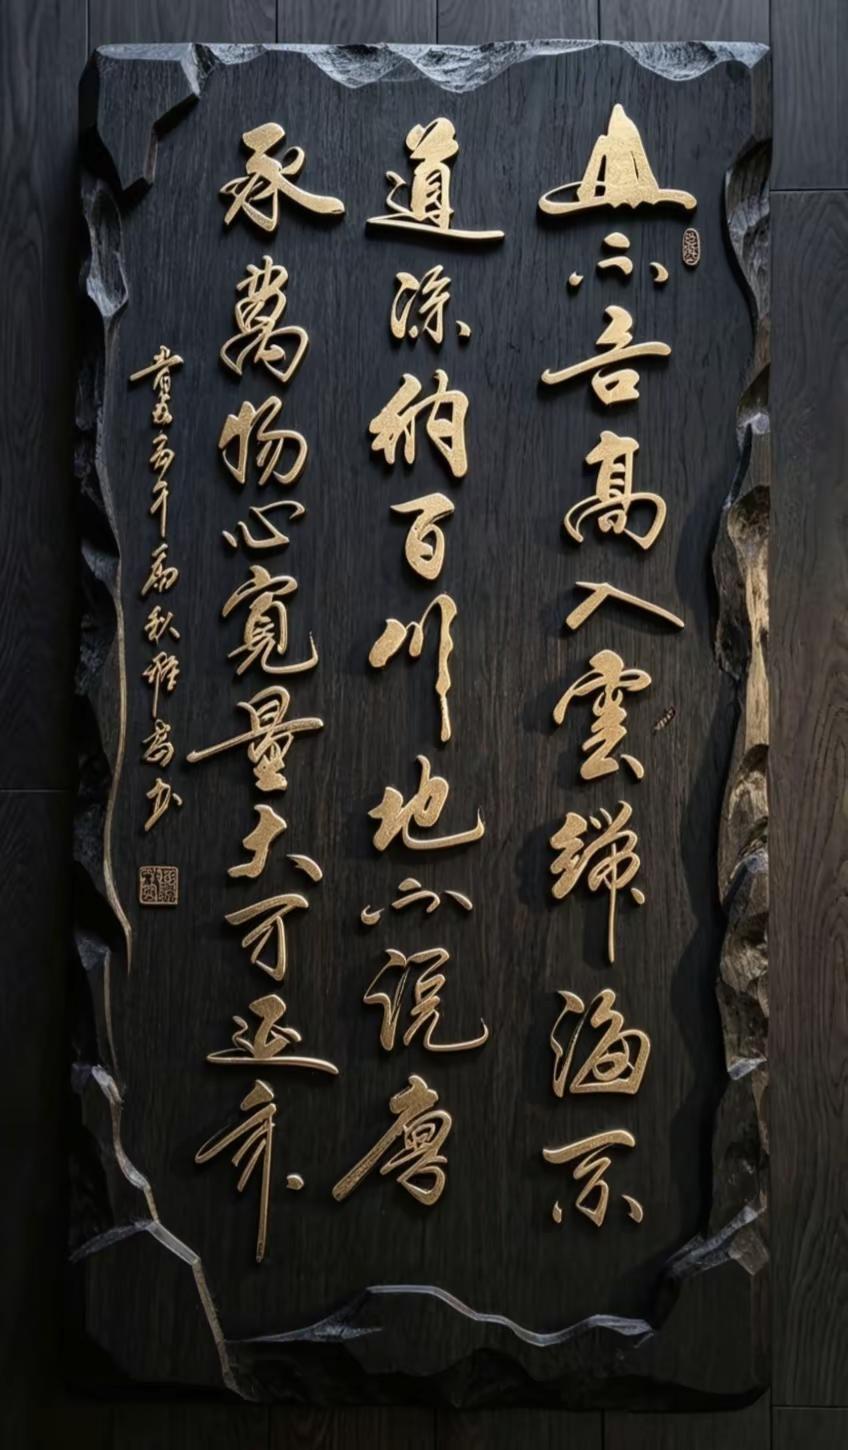 山不言高入雲端海不
道深納百川地不說厚
承萬物心寬量大可延年
丙午為秋雅书